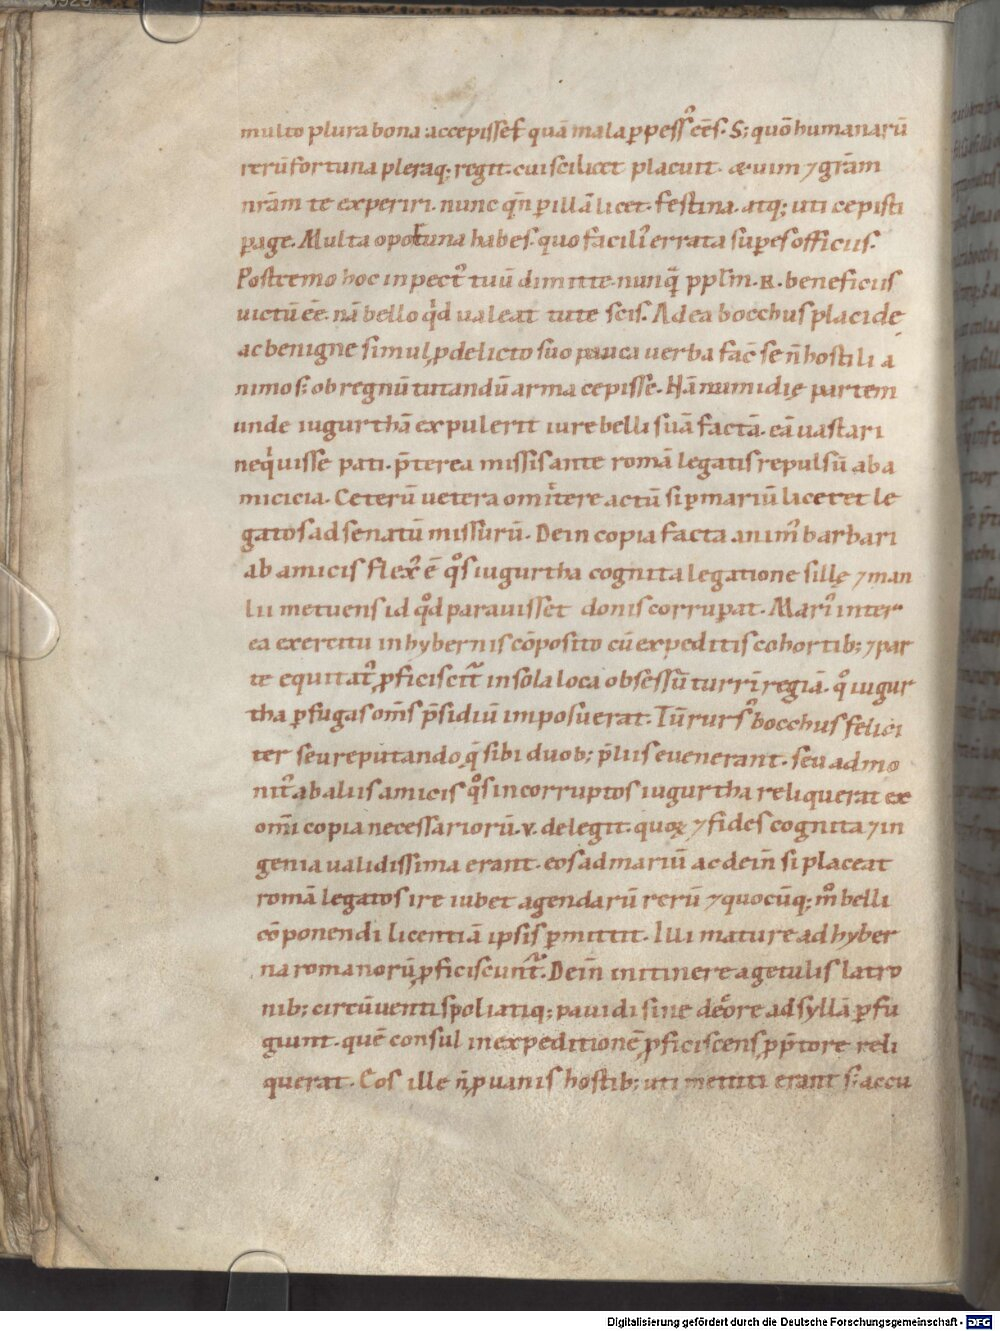 multo plura bona accepisset quā mala ꝑpess᾿ eēs. S; quō humanarū
rerū fortuna pleraq; regit. cui scilicet placuit. & uim ⁊ grām
nrām te experiri. nunc qn̄ ꝑ illā licet. festina. atq; uti cepisti
ꝑage. Multa opotuna habes. quo facili᾿ errata supes officiis.
Postremo hoc in pect᾿ tuū dimitte. nunq̄ᷓ pplm̄. R. beneficiis
uictū eē. nā bello qͥd ualeat tute scis. Ad ea bocchus placide
ac benigne simul ꝓ delicto suo pauca uerba fac̄ se n̄ hostili a
nimo s; ob regnū tutandū arma cepisse. Nā numidię partem
unde iugurthā expulerit iure belli suā factā. eā uastari
neqͥuisse pati. p̄terea missis ante romā legatis repulsū ab a
micicia. Ceterū uetera omittere ac tū si ꝑ mariū liceret le
gatos ad senatū missurū. Dein copia facta anim᾿ barbari
ab amicis flex᾿ ē qͦs iugurtha cognita legatione sillę ⁊ man
lii metuens id qͦd parauisset donis corruꝑat. Mari᾿ inter
ea exercitu in hybernis cōposito cū expeditis cohortib; ⁊ par
te equitat᾿ ꝓficiscit᷑ in sola loca obsessū turrī regiā. qͦ iugur
tha ꝑfugas om̄s p̄sidiū imposuerat. Tū rurs᾿ bocchus felici
ter seu reputando q̄ sibi duob; p̄liis euenerant. seu admo
nit᾿ ab aliis amicis qͦs incorruptos iugurtha reliquerat ex
om̄i copia necessariorū. v. delegit. quoꝝ ⁊ fides cognita ⁊ in
genia ualidissima erant. eos ad mariū ac dein̄ si placeat
romā legatos ire iubet agendarū rerū ⁊ quocūq; mͦ belli
cōponendi licentiā ipsis ꝑmittit. Illi mature ad hyber
na romanorū ꝓficiscunt᷑. Dein̄ in itinere a getulis latro
nib; circūuenti spoliatiq; pauidi sine decͦre ad syllā ꝑfu
giunt. quē consul in expeditionē ꝓficiscens ꝓ p̄tore reli
querat. Eos ille n̄ ꝓ uanis hostib; uti meriti erant s; accu
Digitalisierung gefördert durch die Deutsche Forschungsgemeinschaft - DFG